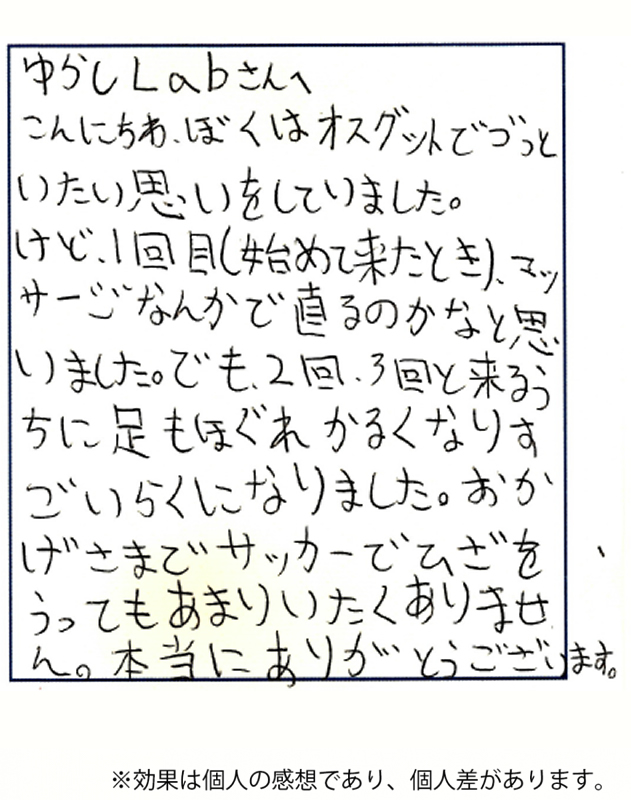 ゆらしLabさんへ
こんにちわ、ぼくはオスグットでづっと
いたい思いをしていました。
けど、1回目(始めて来たとき)、マッ
サージなんかで直るのかなと思
いました。でも、2回、3回と来るう
ちに足もほぐれかるくなりす
ごいらくになりました。おか
げさまでサッカーでひざを
うってもあまりいたくありませ
ん。本当にありがとうございます。
※効果は個人の感想であり、個人差があります。